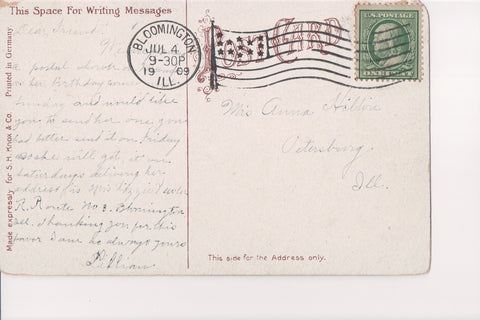 This Space For Writing Messages
Dear Friend
a postal
her Birthday
Sunday and would like
you to send her one you
had better send it on Friday
so she will get it on
Saturdays delivery her
address is Mrs Lizzie
R. Route No. 3. Bloomington
Ill. thanking you for this
favor I am as always yours
Lillian
Made expressly for S. H. Knox & Co. Printed in Germany
BLOOMINGTON
JUL 4
9-30P
1909
ILL.
POST CARD
U.S. POSTAGE
ONE CENT
Mrs Anna
Petersburg
Ill.
This side for the Address only.